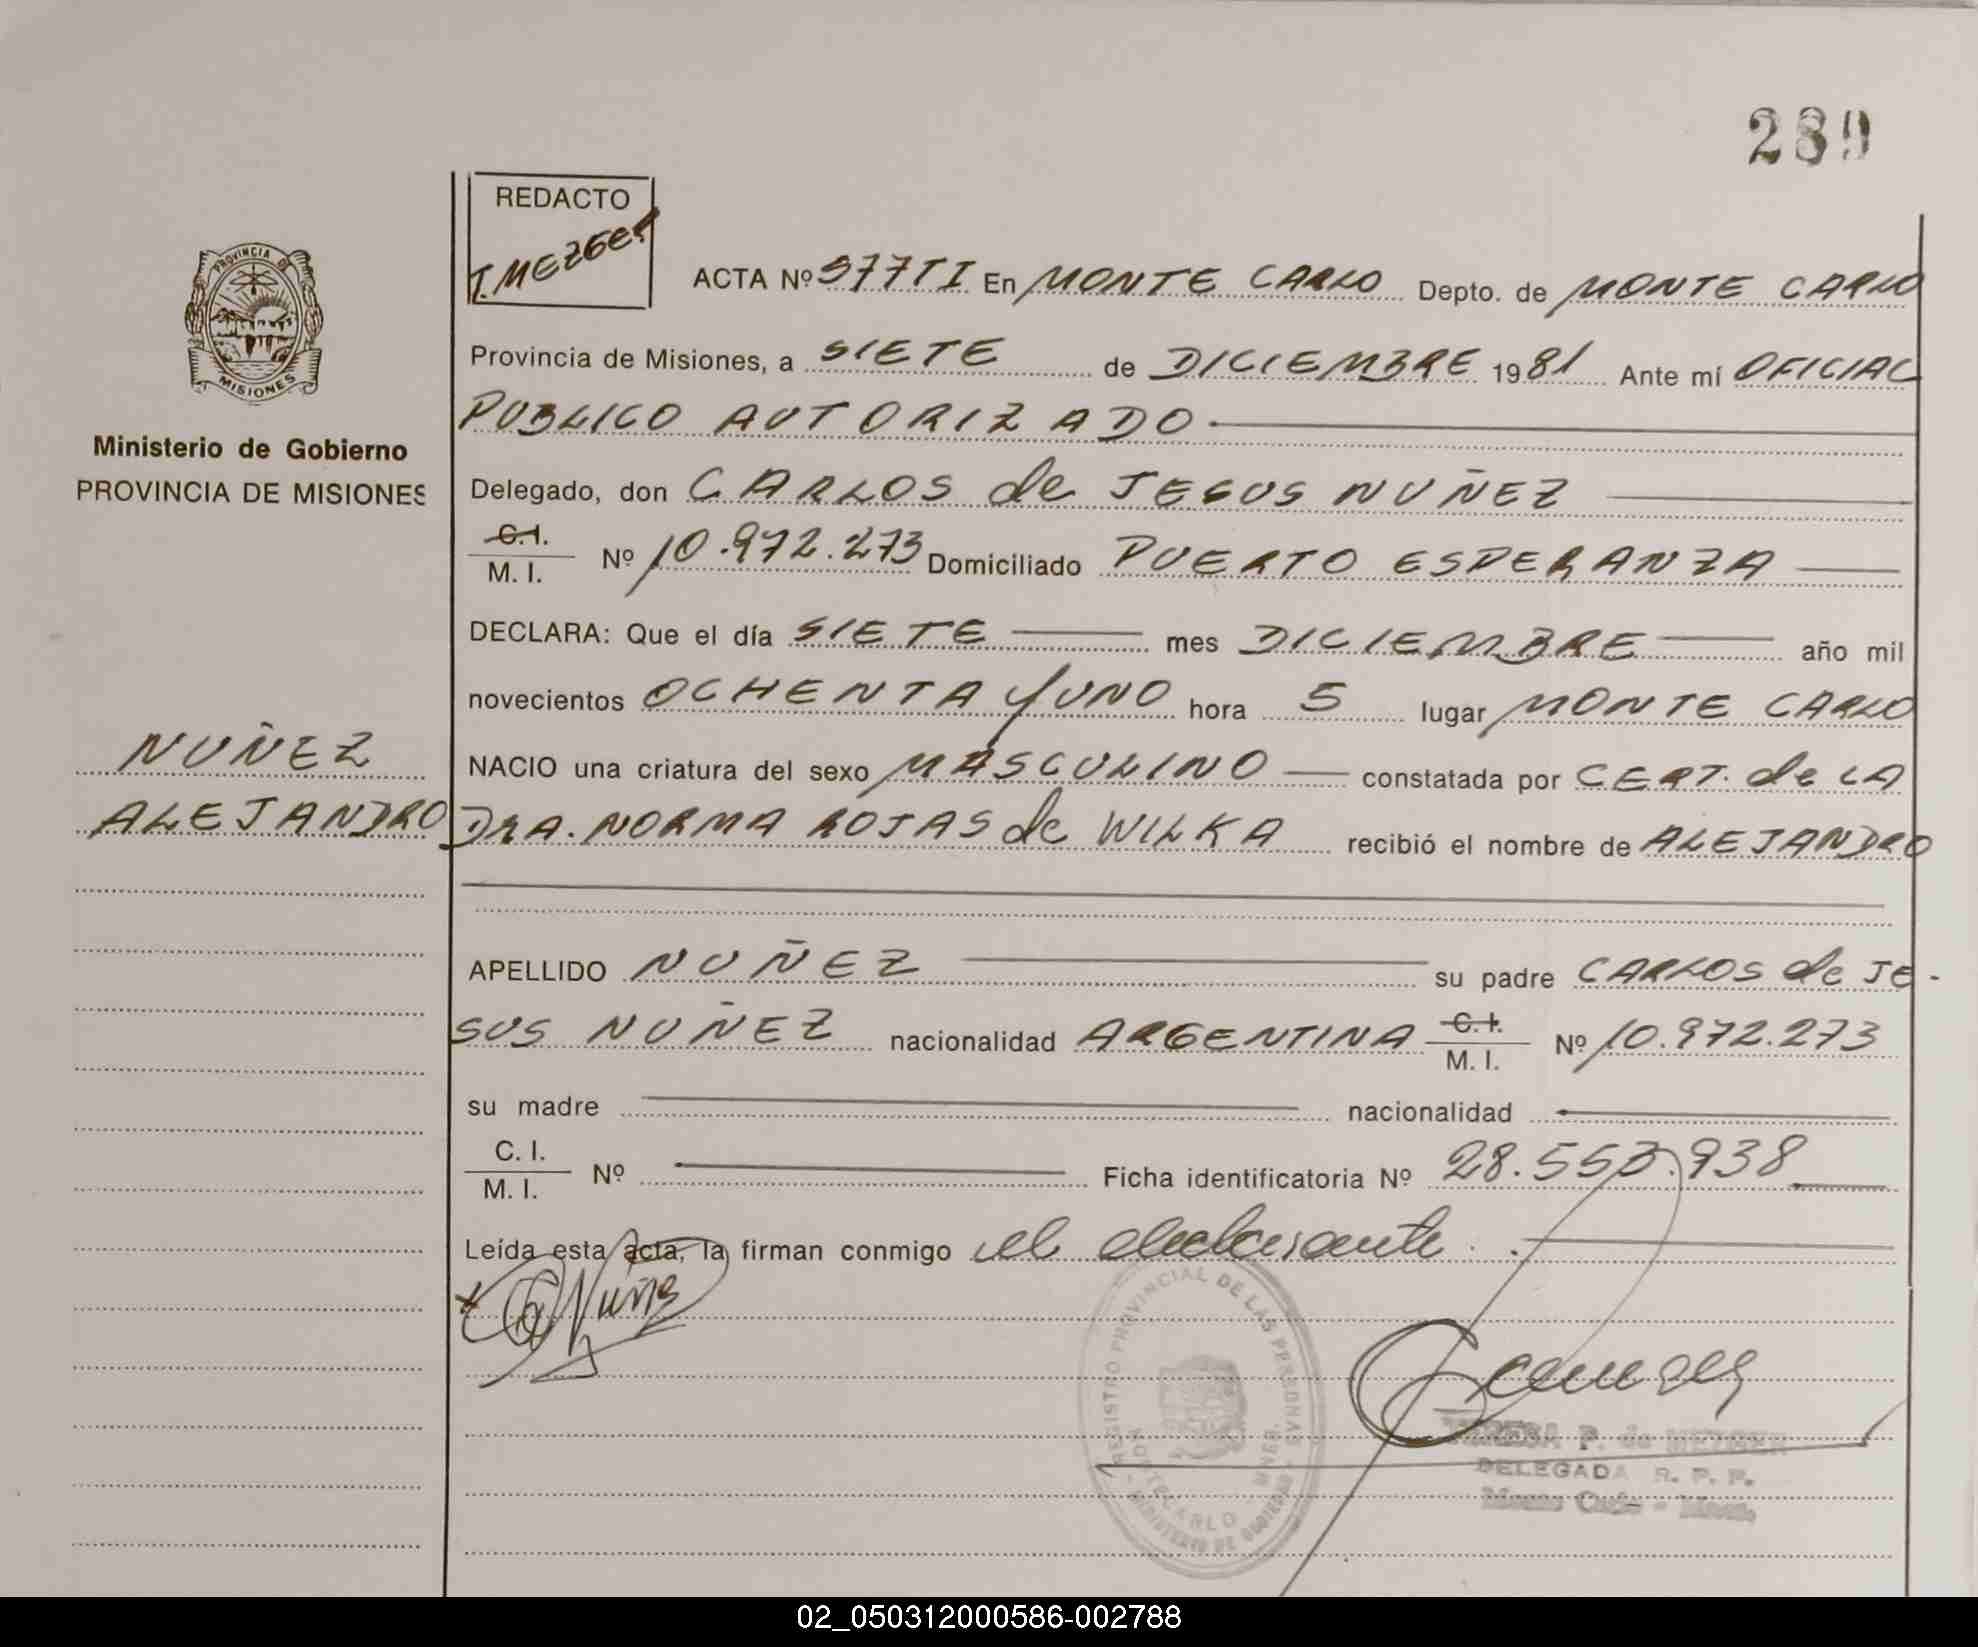 289
REDACTO
T. MEZGER
PROVINCIA DE
MISIONES
Ministerio de Gobierno
PROVINCIA DE MISIONES
NUÑEZ
ALEJANDRO
ACTA Nº 577TI En MONTE CARLO Depto. de MONTE CARLO
Provincia de Misiones, a SIETE de DICIEMBRE 1981 Ante mí OFICIAL
PUBLICO AUTORIZADO
Delegado, don CARLOS de JESUS NUÑEZ
C.I.
M. I. Nº 10.972.273 Domiciliado PUERTO ESPERANZA
DECLARA: Que el día SIETE mes DICIEMBRE año mil
novecientos OCHENTA y UNO hora 5 lugar MONTE CARLO
NACIO una criatura del sexo MASCULINO constatada por CERT. de LA
DRA. NORMA ROJAS de WILKA recibió el nombre de ALEJANDRO
APELLIDO NUÑEZ su padre CARLOS de JE-
SUS NUÑEZ nacionalidad ARGENTINA C.I.
M. I. Nº 10.972.273
su madre nacionalidad
C. I.
M. I. Nº Ficha identificatoria Nº 28.553.938
Leída esta acta, la firman conmigo el declarante.
REGISTRO PROVINCIAL DE LAS PERSONAS
MINISTERIO DE GOBIERNO
TERESA P. de MEZGER
DELEGADA R. P. P.
Monte Carlo - Mnes.
02_050312000586-002788